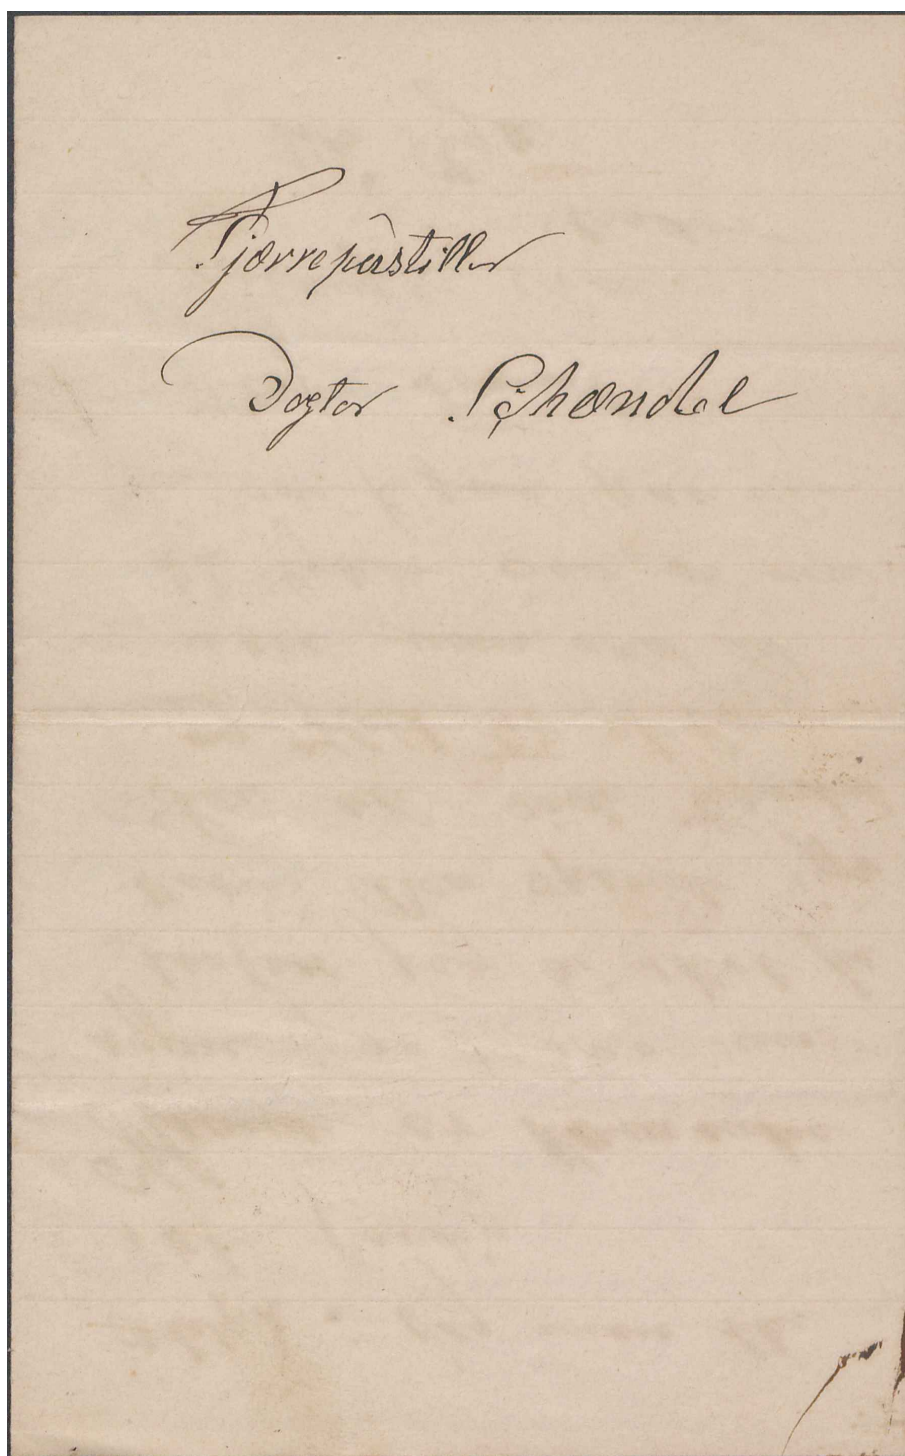 Tjærepastiller
Dogtor Schændel